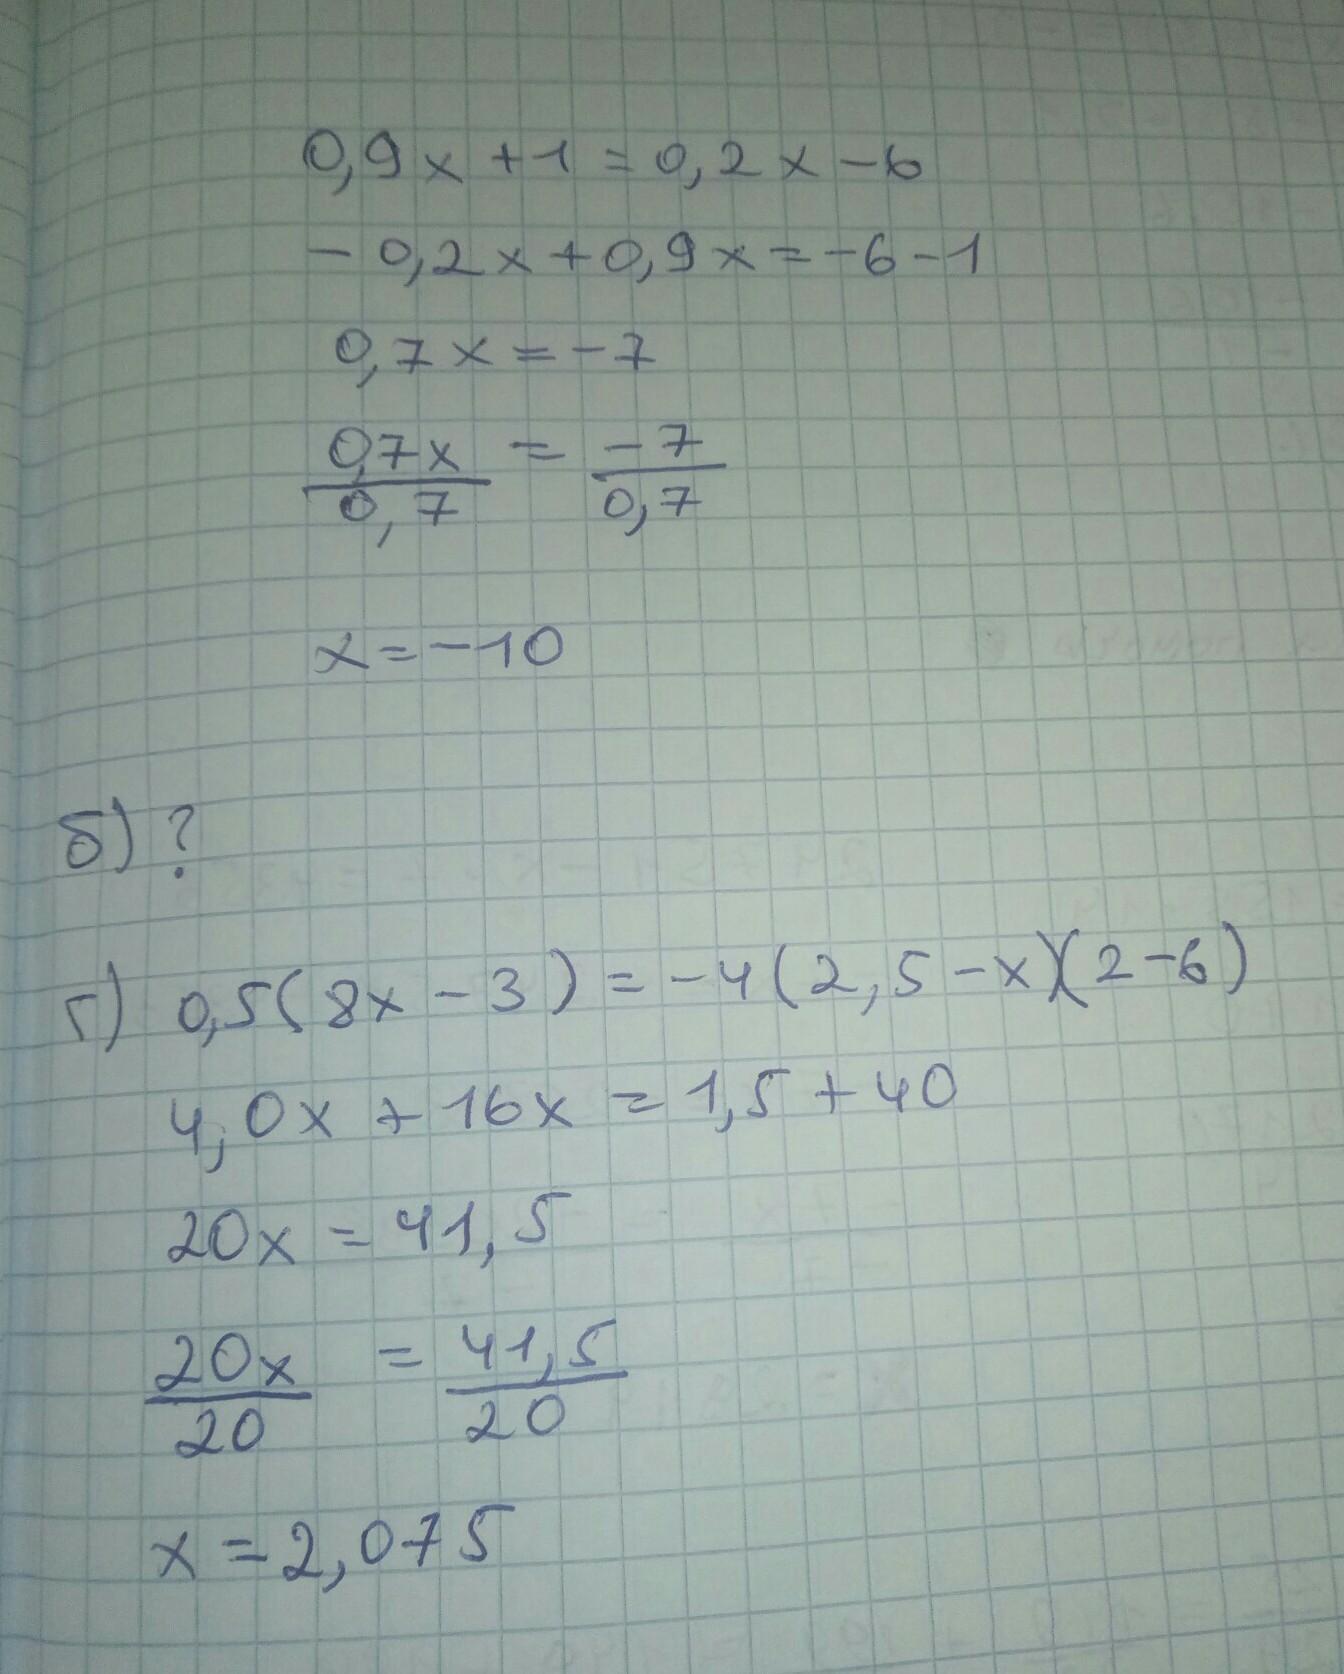 0,9x+1=0,2x-6
-0,2x+0,9x=-6-1
0,7x=-7
0,7x/0,7 = -7/0,7
x=-10
б) ?
г) 0,5(8x-3)=-4(2,5-x)(2-6)
4,0x+16x=1,5+40
20x=41,5
20x/20 = 41,5/20
x=2,075